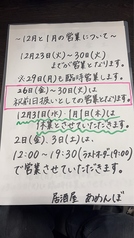 ~12月と1月の営業について~
12月23日(火)~30日(火)
までが営業となります。
※29日(月)も臨時営業します。
26日(金)~30日(火)は
祝前日扱いとしての営業となります。
12月31日(水) 1月1日(木)は
休業とさせていただきます。
2日(金)、3日(土)は、
12:00~19:30(ラストオーダー19:00)
で営業させていただきます。
居酒屋 あめんぼ